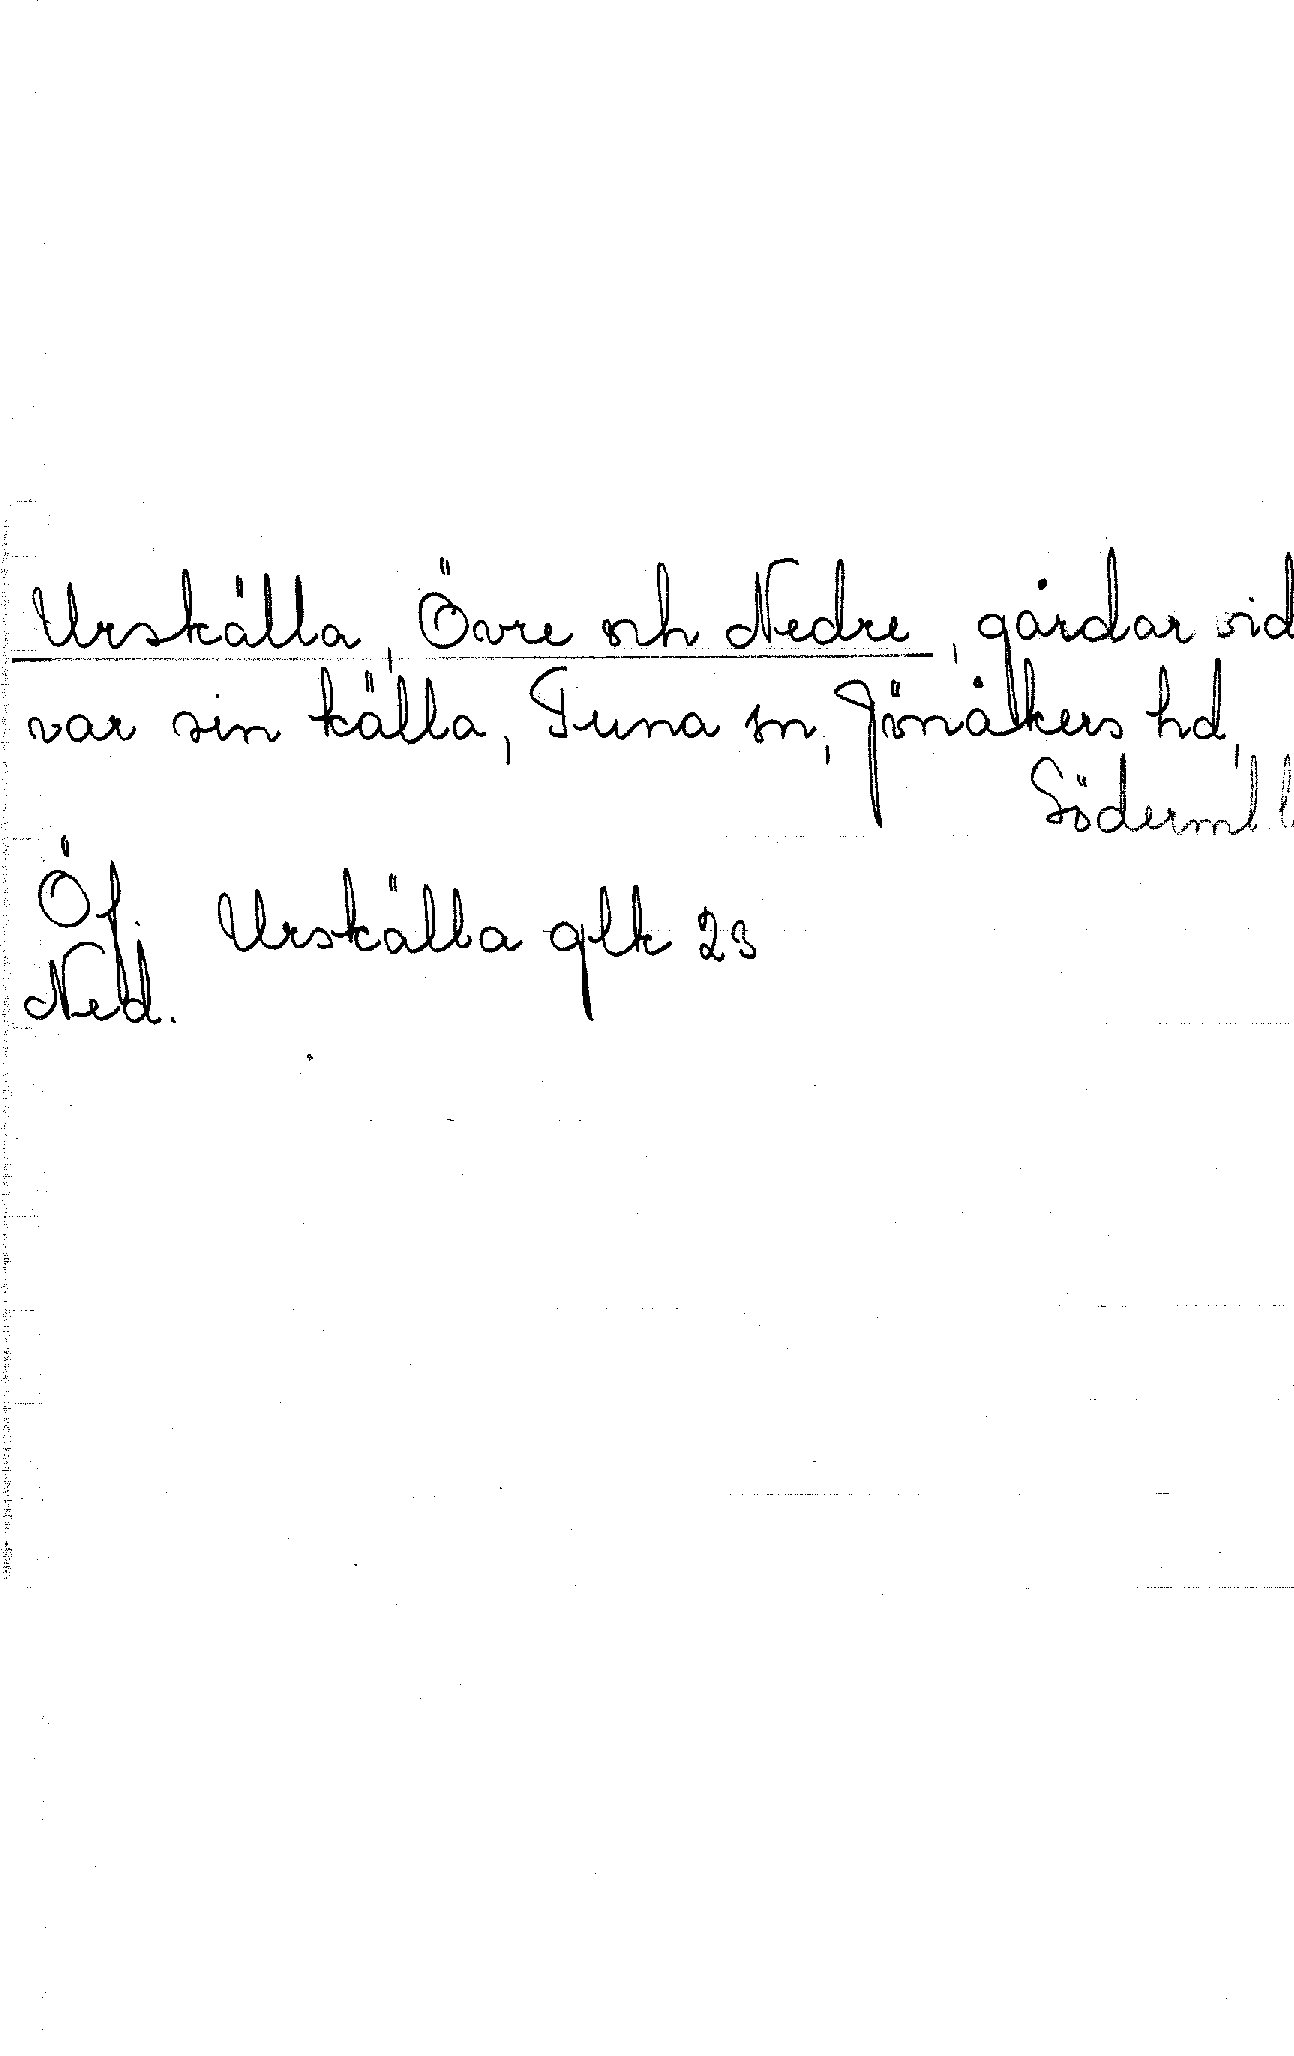 Urskälla, Övre och Nedre, gårdar vid
var sin källa, Tuna sn, Jönåkers hd,
Söderml l
Öf. Urskälla glk 23
Ned.